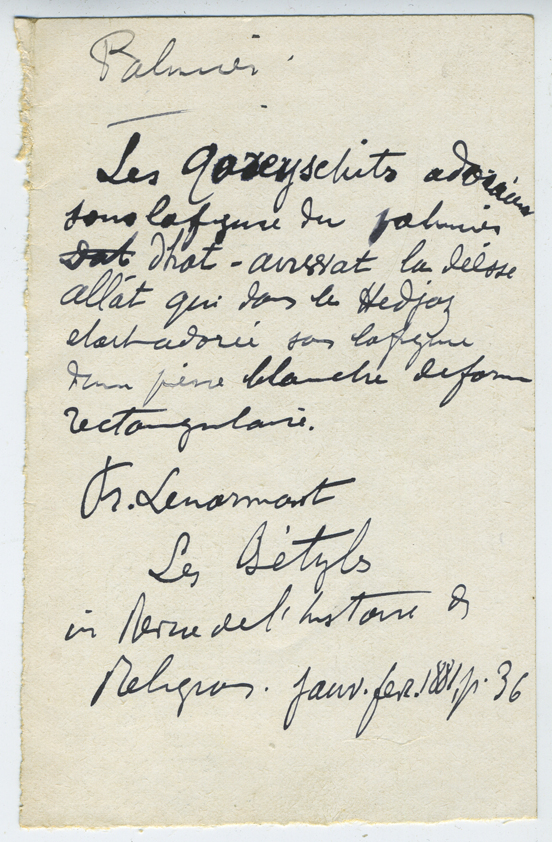 Palmier.
Les Qoreyschits adoraient
sous la figure du palmier
dat dhat-anwat la déesse
allât qui dans le Hedjaz
etait adorée sous la figure
d'une pierre blanche de forme
rectangulaire.
Fr. Lenormant
Les Bétyles
in Revue de l'histoire des
Religions. janv. fev. 1881, p. 36